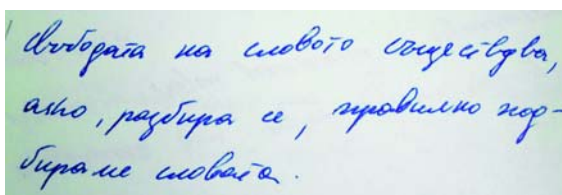 Свободата на словото съществува,
ако, разбира се, правилно под-
бираме словата.